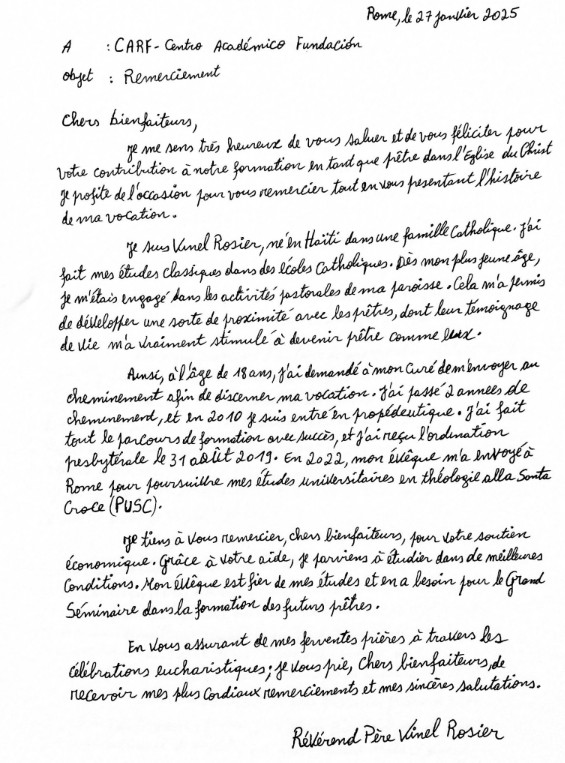 Rome, le 27 janvier 2025
A : CARF- Centro Académico Fundación
objet : Remerciement
Chers bienfaiteurs,
Je me sens très heureux de vous saluer et de vous féliciter pour
votre contribution à notre formation en tant que prêtre dans l'Église du Christ
Je profite de l'occasion pour vous remercier tout en vous presentant l'histoire
de ma vocation.
Je suis Vinel Rosier, né en Haïti dans une famille Catholique. J'ai
fait mes études classiques dans des écoles Catholiques. Dès mon plus jeune âge,
Je m'étais engagé dans les activités pastorales de ma paroisse. Cela m'a permis
de développer une sorte de proximité avec les prêtres, dont leur témoignage
de vie m'a vraiment stimulé à devenir prêtre comme eux.
Ainsi, à l'âge de 18 ans, j'ai demandé à mon Curé de m'envoyer au
cheminement afin de discerner ma vocation. J'ai passé 2 années de
cheminement, et en 2010 je suis entré en propédeutique. J'ai fait
tout le parcours de formation avec succès, et j'ai reçu l'ordination
presbytérale le 31 août 2019. En 2022, mon évêque m'a envoyé à
Rome pour poursuivre mes études universitaires en théologie alla Santa
Croce (PUSC).
Je tiens à vous remercier, chers bienfaiteurs, pour votre soutien
économique. Grâce à votre aide, je parviens à étudier dans de meilleures
Conditions. Mon évêque est fier de mes études et en a besoin pour le Grand
Séminaire dans la formation des futurs prêtres.
En vous assurant de mes ferventes prières à travers les
célébrations eucharistiques; je vous prie, chers bienfaiteurs, de
recevoir mes plus cordiaux remerciements et mes sincères salutations.
Révérend Père Vinel Rosier